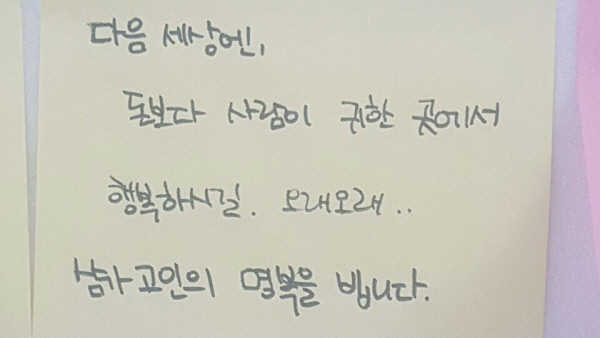 다음 세상엔,
돈보다 사람이 귀한 곳에서
행복하시길. 오래오래..
삼가 고인의 명복을 빕니다.